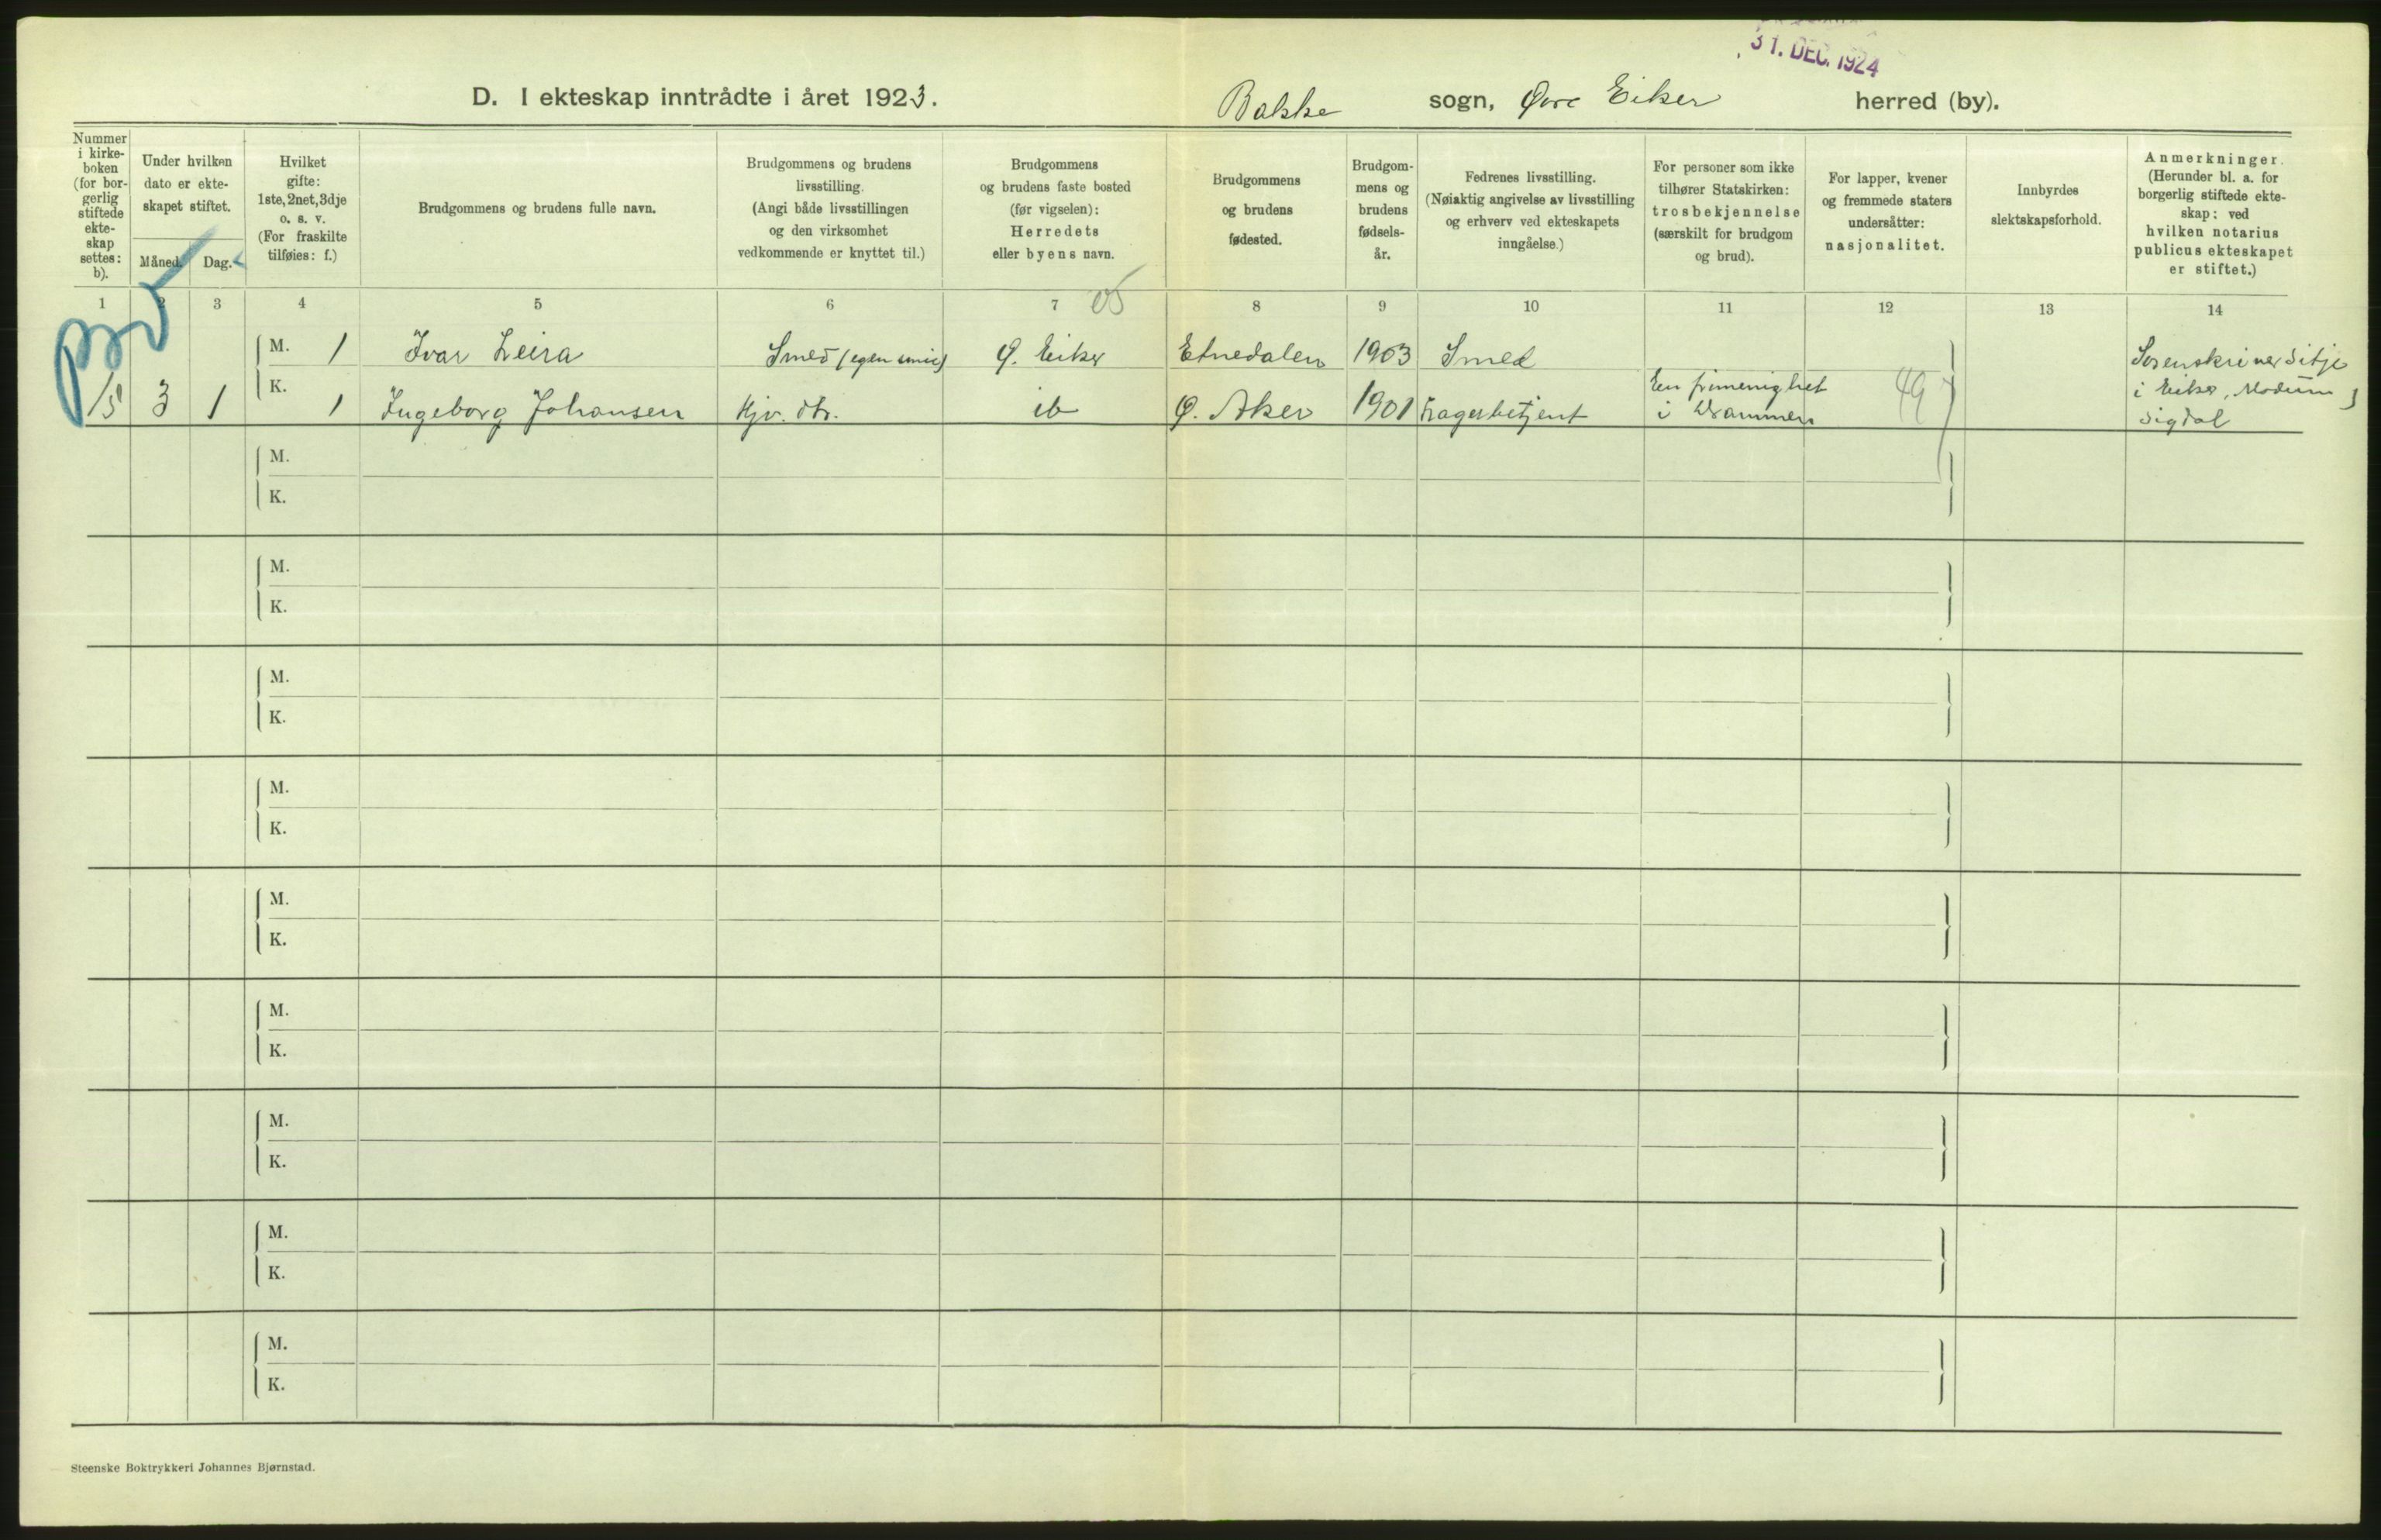 31. DEC. 1924
D. I ekteskap inntrådte i året 1923.
Bakke sogn, Øvre Eiker herred (by).
Nummer
i kirke-
boken
(for bor-
gerlig
stiftede
ekte-
skap
settes:
b).
Under hvilken
dato er ekte-
skapet stiftet.
Måned.
Dag.
Hvilket
gifte:
1ste, 2net, 3dje
o. s. v.
(For fraskilte
tilføies: f.)
Brudgommens og brudens fulle navn.
Brudgommens og brudens
livsstilling.
(Angi både livsstillingen
og den virksomhet
vedkommende er knyttet til.)
Brudgommens
og brudens faste bosted
(før vigselen):
Herredets
eller byens navn.
Brudgommens
og brudens
fødested.
Brudgom-
mens og
brudens
fødsels-
år.
Fedrenes livsstilling.
(Nøiaktig angivelse av livsstilling
og erhverv ved ekteskapets
inngåelse.)
For personer som ikke
tilhører Statskirken:
trosbekjennelse
(særskilt for brudgom
og brud).
For lapper, kvener
og fremmede staters
undersåtter:
nasjonalitet.
Innbyrdes
slektskapsforhold.
Anmerkninger.
(Herunder bl. a. for
borgerlig stiftede ekte-
skap: ved
hvilken notarius
publicus ekteskapet
er stiftet.)
1 2 3 4 5 6 7 8 9 10 11 12 13 14
05
M. 1 Ivar Leira Smed (egen smie) Ø. Eiker Etnedalen 1903 Smed
15 3 1 K. 1 Ingeborg Johansen Hjv. dtr. ib Ø. Aker 1901 Lagerbetjent
En frimenighet
i Drammen
49
Sorenskriver Sitje
i Eiker, Modum
Sigdal
M.
K.
M.
K.
M.
K.
M.
K.
M.
K.
M.
K.
M.
K.
M.
K.
M.
K.
Steenske Boktrykkeri Johannes Bjørnstad.